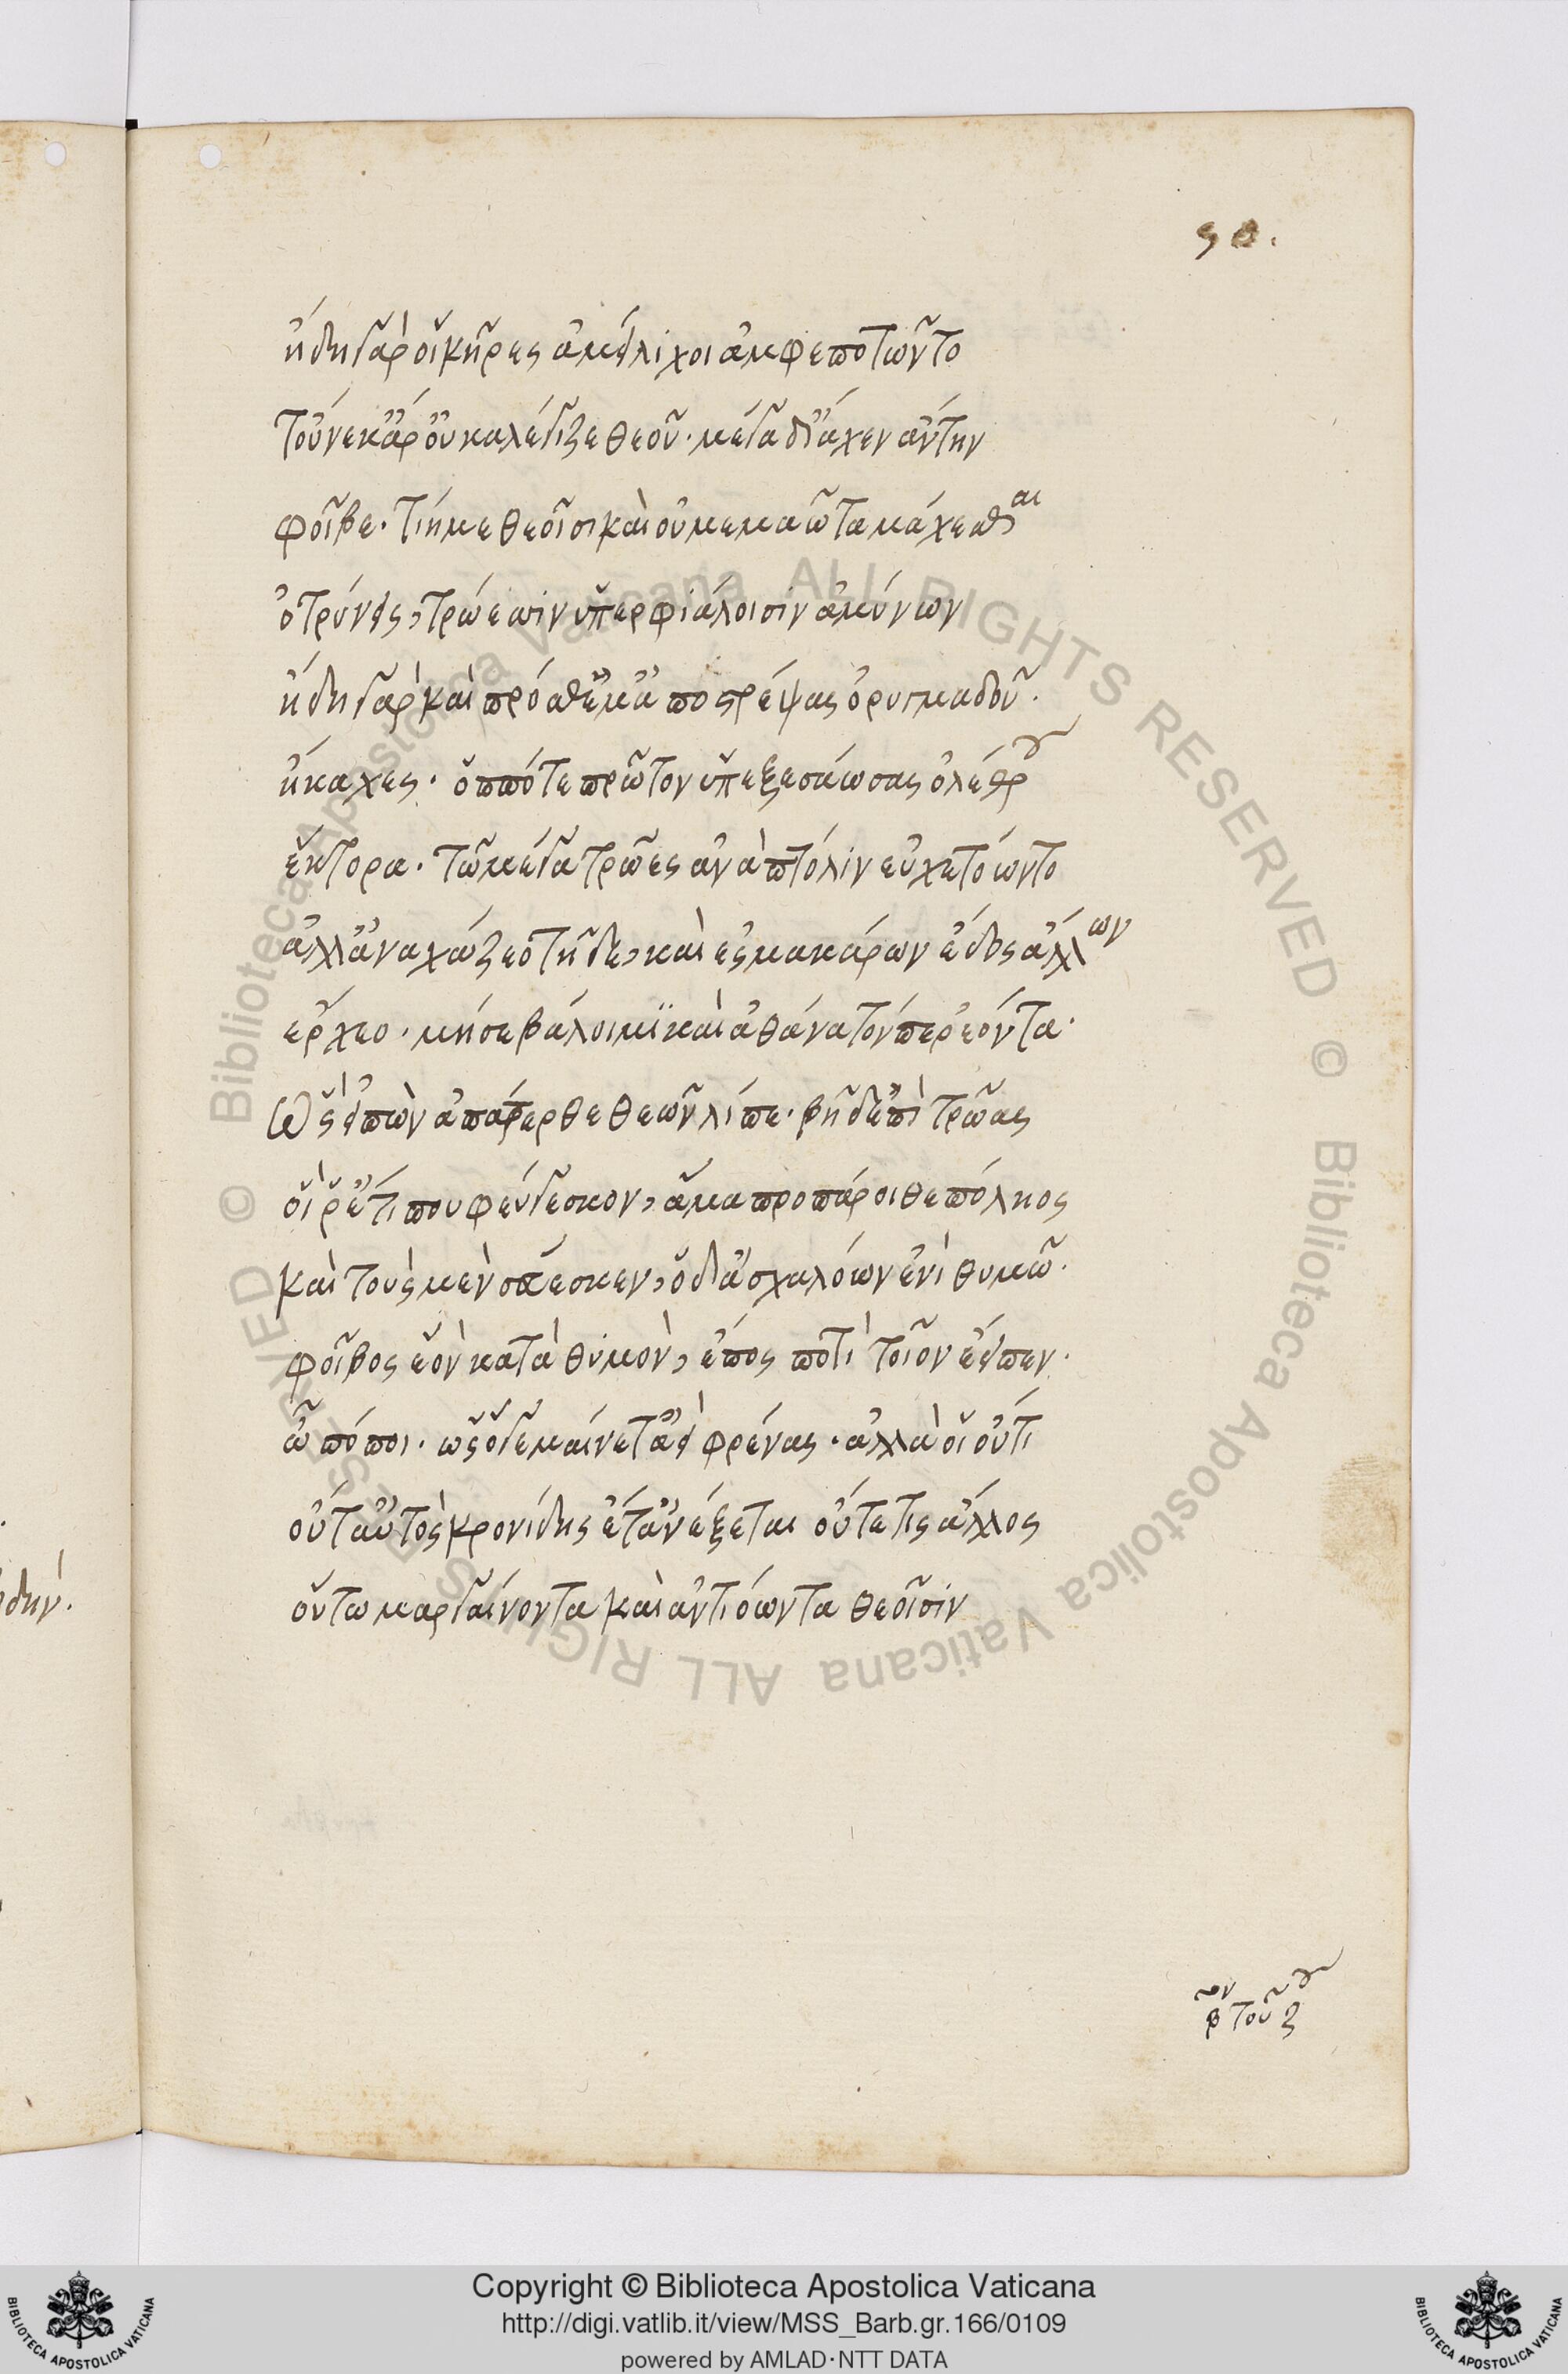 50.
ἤδη γάρ οἱ κῆρες ἀμείλιχοι ἀμφεποτῶντο
τοὔνεκ' ἄρ' οὐκ ἀλέγιζε θεοῦ· μέγα δ' ἴαχεν ἄντην
φοῖβε· τί ἤ με θεοῖσι καὶ οὐ μεμαῶτα μάχεσθαι
ὀτρύνεις, τρώεσσιν ὑπερφιάλοισιν ἀμύνων
ἤδη γὰρ καὶ πρόσθέ μ' ἀποστρέψας ὀρυμαγδοῦ·
ἤκαχες· ὁππότε πρῶτον ὑπεξεσάωσας ὀλέθρου
ἕκτορα· τῶ μέγα τρῶες ἀνὰ πτόλιν εὐχετόωντο
ἀλλ' ἀναχάζεο τῆδε, καὶ ἐς μακάρων ἕδος ἄλλων
ἔρχεο· μή σε βάλοιμι καὶ ἀθάνατόν περ ἐόντα·
Ὣς εἰπὼν ἀπάτερθε θεῶν λίπε· βῆ δ' ἐπὶ τρῶας
οἵ ῥ' ἔτι που φεύγεσκον, ἅμα προπάροιθε πόληος
καὶ τοὺς μὲν σπέσκεν, ὁ δ' ἀσχαλόων ἐνὶ θυμῶ·
φοῖβος ἑὸν κατὰ θυμὸν, ἔπος ποτὶ τοῖον ἔειπεν·
ὢ πόποι· ὡς ὅ γε μαίνετ' ἀεὶ φρένας· ἀλλὰ οἱ οὔτι
οὔτ' αὐτὸς κρονίδης ἔτ' ἀνέξεται οὔτέ τις ἄλλος
οὕτω μαργαίνοντα καὶ ἀντιόωντα θεοῖσιν
Copyright © Biblioteca Apostolica Vaticana
http://digi.vatlib.it/view/MSS_Barb.gr.166/0109
powered by AMLAD·NTT DATA